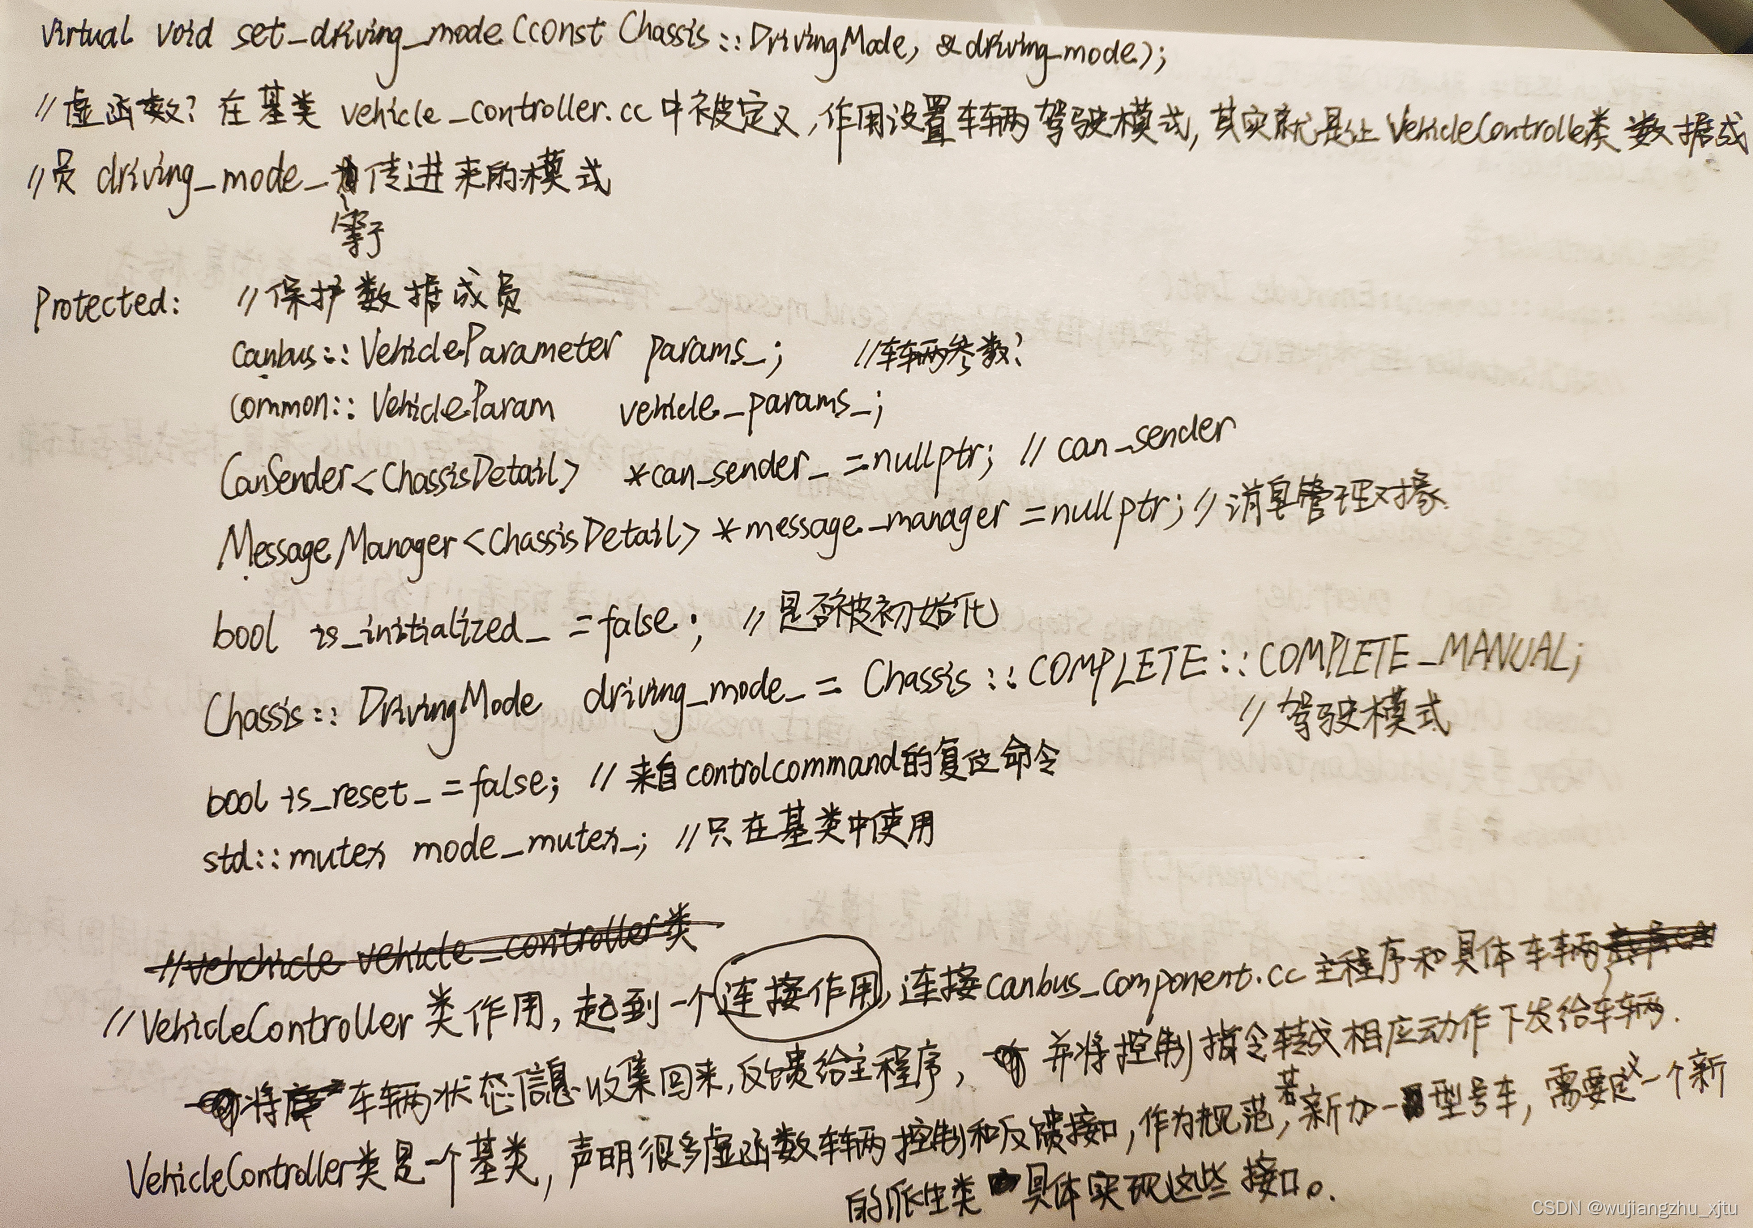 Virtual void set_driving_mode(const Chassis::DrivingMode, &driving_mode);
//虚函数?在基类 vehicle_controller.cc中被定义,作用设置车辆驾驶模式,其实就是让VehicleControlle类数据成
//员 driving_mode_等于传进来的模式
Protected: //保护数据成员
canbus::VehicleParameter params_; //车辆参数?
common::VehicleParam vehicle_params_;
CanSender<ChassisDetail> *can_sender_=nullptr; // can_sender
MessageManager<ChassisDetail> *message_manager=nullptr; //消息管理对象
bool is_initialized_=false; //是否被初始化
Chassis::DrivingMode driving_mode_= Chassis::COMPLETE::COMPLETE_MANUAL;
//驾驶模式
bool is_reset_=false; //来自controlcommand的复位命令
std::mutex mode_mutex_; //只在基类中使用
//vehchicle vehicle_controller类
//VehicleController类作用,起到一个连接作用,连接canbus_component.cc主程序和具体车辆
将 车辆状态信息收集回来,反馈给主程序, 并将控制指令转成相应动作下发给车辆.
VehicleController类是一个基类,声明很多虚函数车辆控制和反馈接口,作为规范,若新加一型号车,需要定义一个新
的派生类 具体实现这些接口。
CSDN @wujiangzhu_xjtu